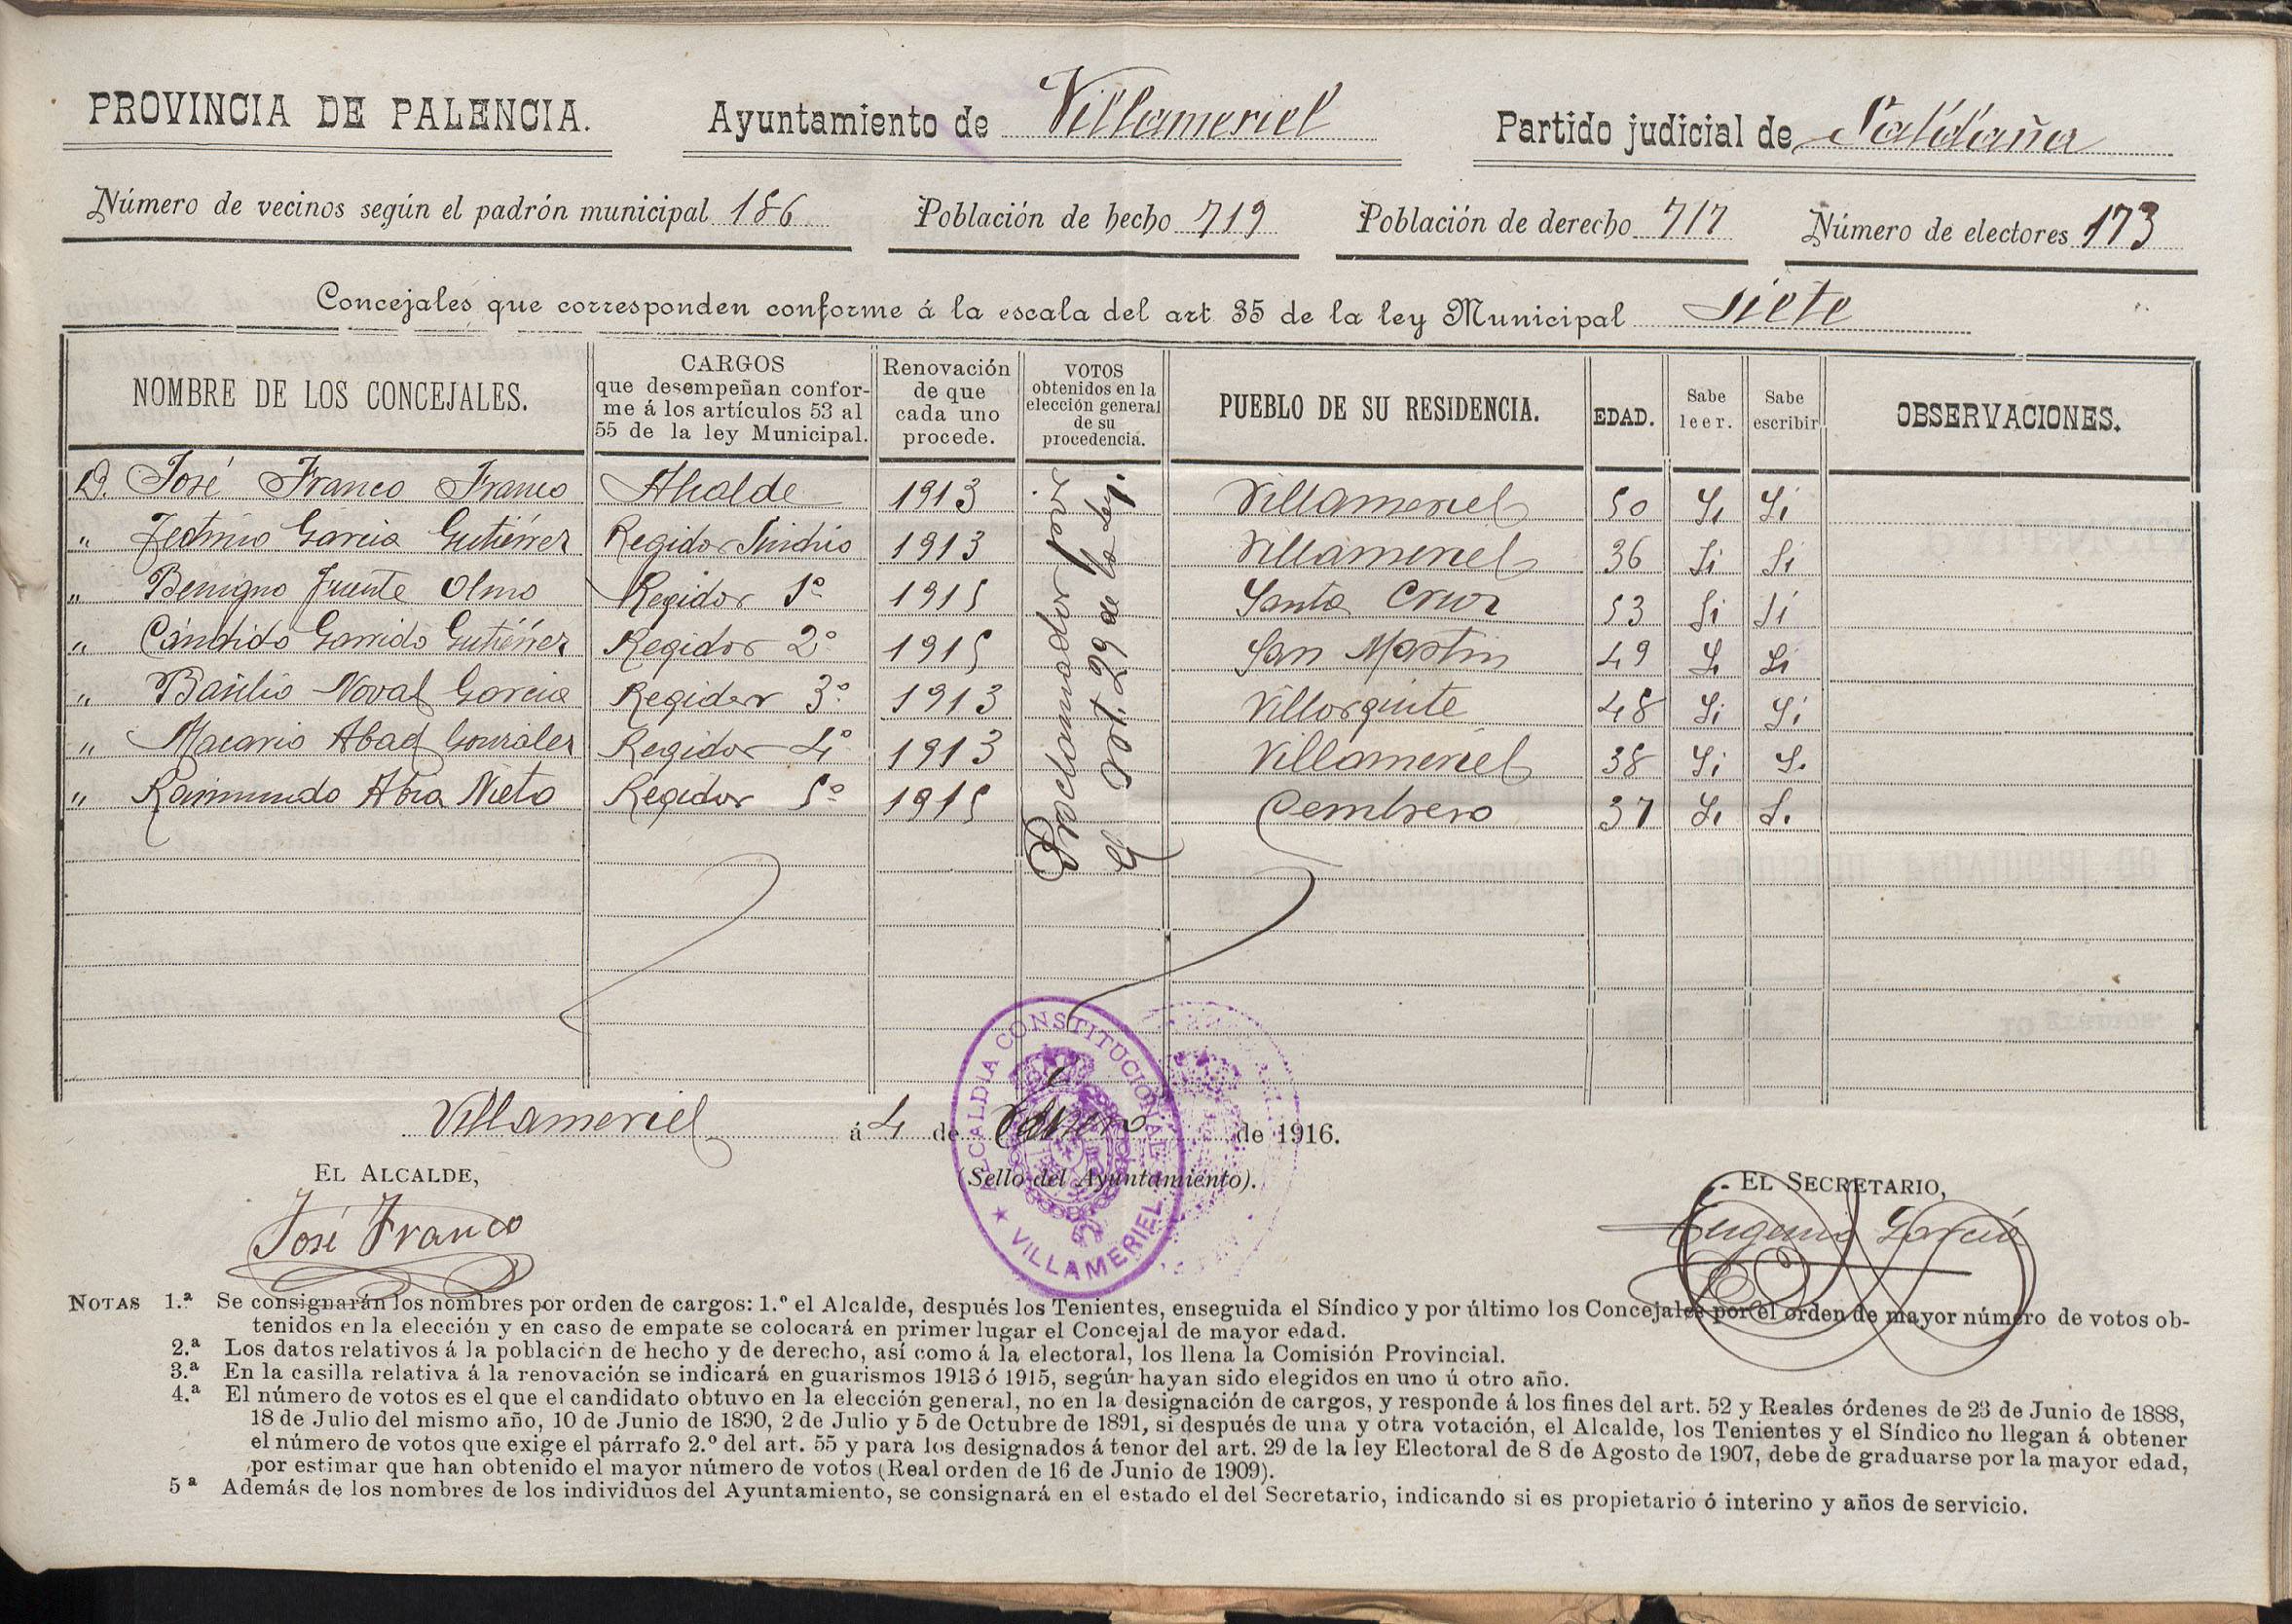 PROVINCIA DE PALENCIA. Ayuntamiento de Villameriel Partido judicial de Saldaña
Número de vecinos según el padrón municipal 186 Población de hecho 719 Población de derecho 717 Número de electores 173
Concejales que corresponden conforme á la escala del art 35 de la ley Municipal siete
NOMBRE DE LOS CONCEJALES. CARGOS que desempeñan conforme á los artículos 53 al 55 de la ley Municipal. Renovación de que cada uno procede. VOTOS obtenidos en la elección general de su procedencia. PUEBLO DE SU RESIDENCIA. EDAD. Sabe leer. Sabe escribir OBSERVACIONES.
D. José Franco Franco Alcalde 1913 Villameriel 50 Si Si
" García Gutiérrez Regidor Síndico 1913 Villameriel 36 Si Si
" Benigno Fuente Olmo Regidor 1º 1915 Santa Cruz 53 Si Si
" Cándido Garrido Gutiérrez Regidor 2º 1915 San Martin 49 Si Si
" Basilio Noval Garcia Regidor 3º 1913 Villorquite 48 Si Si
" Macario Abad Gonzáles Regidor 4º 1913 Villameriel 38 Si S.
" Raimundo Abia Nieto Regidor 5º 1915 Cembrero 37 Si S.
Proclamados por
el art. 29 de la ley.
Villameriel á 4 de Enero de 1916.
EL ALCALDE, (Sello del Ayuntamiento). EL SECRETARIO,
José Franco Eugenio García
ALCALDIA CONSTITUCIONAL DE ★ VILLAMERIEL
NOTAS 1.ª Se consignarán los nombres por orden de cargos: 1.º el Alcalde, después los Tenientes, enseguida el Síndico y por último los Concejales por el orden de mayor número de votos ob-
tenidos en la elección y en caso de empate se colocará en primer lugar el Concejal de mayor edad.
2.ª Los datos relativos á la población de hecho y de derecho, así como á la electoral, los llena la Comisión Provincial.
3.ª En la casilla relativa á la renovación se indicará en guarismos 1913 ó 1915, según hayan sido elegidos en uno ú otro año.
4.ª El número de votos es el que el candidato obtuvo en la elección general, no en la designación de cargos, y responde á los fines del art. 52 y Reales órdenes de 23 de Junio de 1888,
18 de Julio del mismo año, 10 de Junio de 1890, 2 de Julio y 5 de Octubre de 1891, si después de una y otra votación, el Alcalde, los Tenientes y el Síndico no llegan á obtener
el número de votos que exige el párrafo 2.º del art. 55 y para los designados á tenor del art. 29 de la ley Electoral de 8 de Agosto de 1907, debe de graduarse por la mayor edad,
por estimar que han obtenido el mayor número de votos (Real orden de 16 de Junio de 1909).
5ª Además de los nombres de los individuos del Ayuntamiento, se consignará en el estado el del Secretario, indicando si es propietario ó interino y años de servicio.